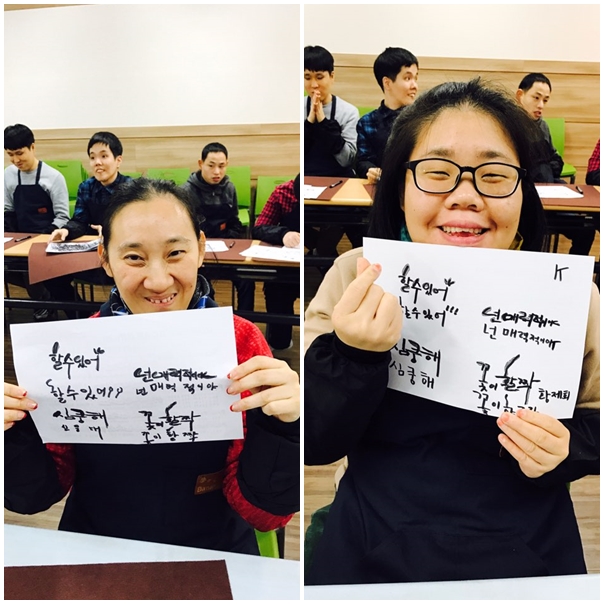 할수있어
할수있어!!
심쿵해
넌매력적이야
넌매력 적이야
꽃이활짝
꽃이 활짝
K
할수있어
할수있어!!!
심쿵해
심쿵해
넌매력적이야
넌 매력적이야
꽃이활짝
꽃이